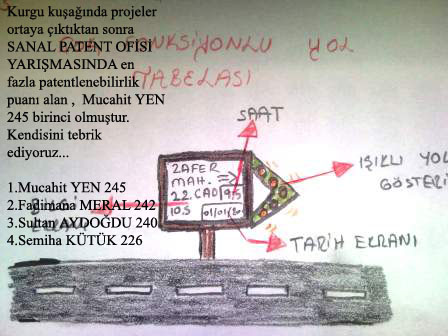 Kurgu kuşağında projeler
ortaya çıktıktan sonra
SANAL PATENT OFİSİ
YARIŞMASINDA en
fazla patentlenebilirlik
puanı alan , Mucahit YEN
245 birinci olmuştur.
Kendisini tebrik
ediyoruz...
1.Mucahit YEN 245
2.Fadimana MERAL 242
3.Sultan AYDOĞDU 240
4.Semiha KÜTÜK 226
FONKSİYONLU YOL
TABELASI
SAAT
IŞIKLI YOL
GÖSTERİ
TARİH EKRANI
ZAFER
MAH.
22.CAD
10.S